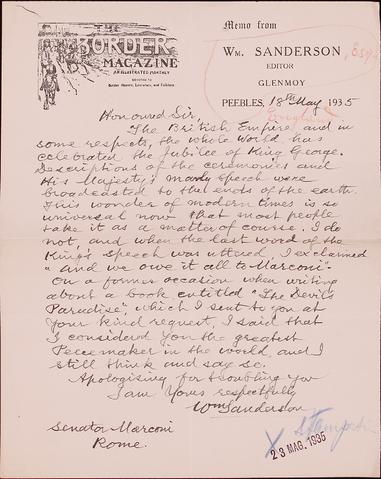 THE
BORDER
MAGAZINE
AN ILLUSTRATED MONTHLY
DEVOTED TO
Border History, Literature, and Folklore
Memo from
WM. SANDERSON,
EDITOR
GLENMOY
PEEBLES, 18th May 1935
England
Honoured Sir,
The British Empire, and in
some respects, the whole World has
celebrated the Jubilee of King George.
Descriptions of the ceremonies and
His Majesty's manly speech were
broadcasted to the ends of the earth.
This wonder of modern times is so
universal now that most people
take it as a matter of course. I do
not, and when the last word of the
King's speech was uttered, I exclaimed
"and we owe it all to Marconi"
On a former occasion when writing
about a book entitled "The Devil's
Paradise", which I sent to you at
your kind request, I said that
I considered you the greatest
Peacemaker in the world, and I
still think and say so.
Apologising for troubling you
I am Yours respectfully
Wm Sanderson
Senator Marconi
Rome.
23 MAG. 1935